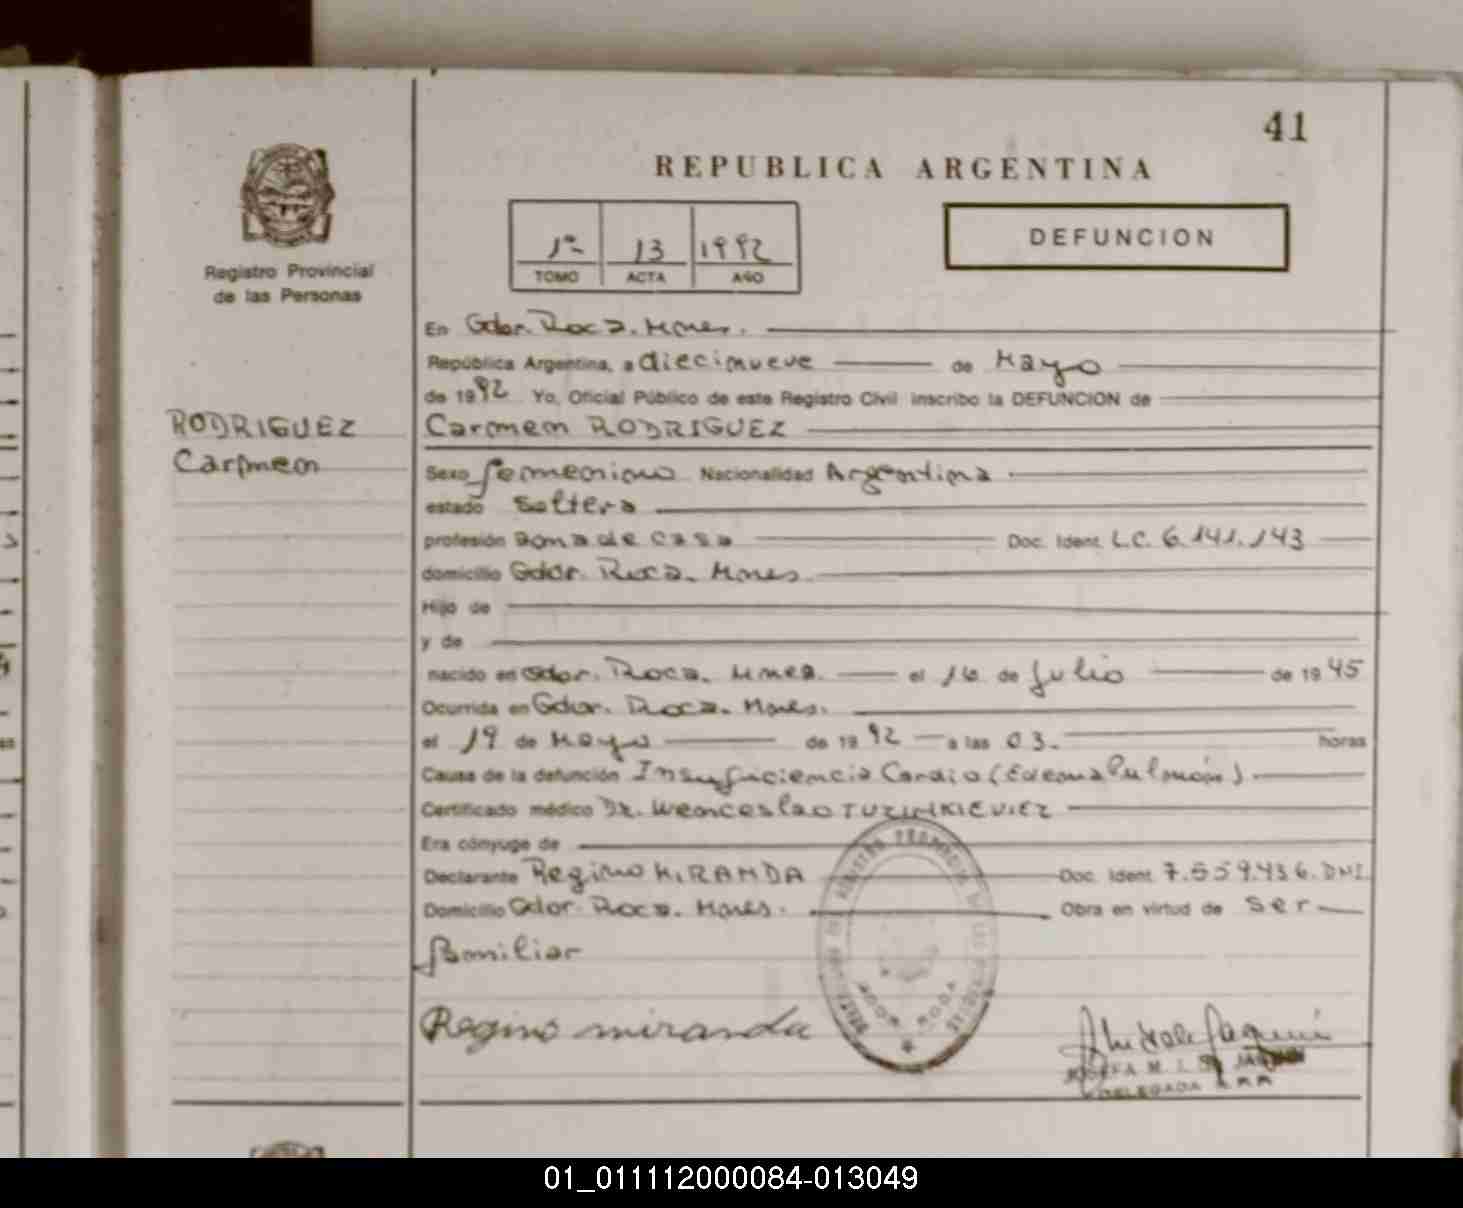 41
REPUBLICA ARGENTINA
1º 13 1992
TOMO ACTA AÑO
DEFUNCION
Registro Provincial
de las Personas
En Gdor. Roca. Mnes.
República Argentina, a diecinueve de Mayo
de 1992 Yo, Oficial Público de este Registro Civil inscribo la DEFUNCION de
RODRIGUEZ
Carmen
Carmen RODRIGUEZ
Sexo femenino Nacionalidad Argentina
estado Soltera
profesión ama de casa Doc. Ident. L.C. 6.141.143
domicilio Gdor. Roca. Mnes.
Hijo de
y de
nacido en Gdor. Roca. Mnes. el 16 de Julio de 1945
Ocurrida en Gdor. Roca. Mnes.
el 19 de Mayo de 1992 a las 03. horas
Causa de la defunción Insuficiencia Cardio (Edema Pulmón)
Certificado médico Dr. Wenceslao
Era cónyuge de
Declarante Regino MIRANDA Doc. Ident. 7.559.436. DNI
Domicilio Gdor. Roca. Mnes. Obra en virtud de Ser
familiar
Regino miranda
JOSEFA M. I.
DELEGADA
01_011112000084-013049